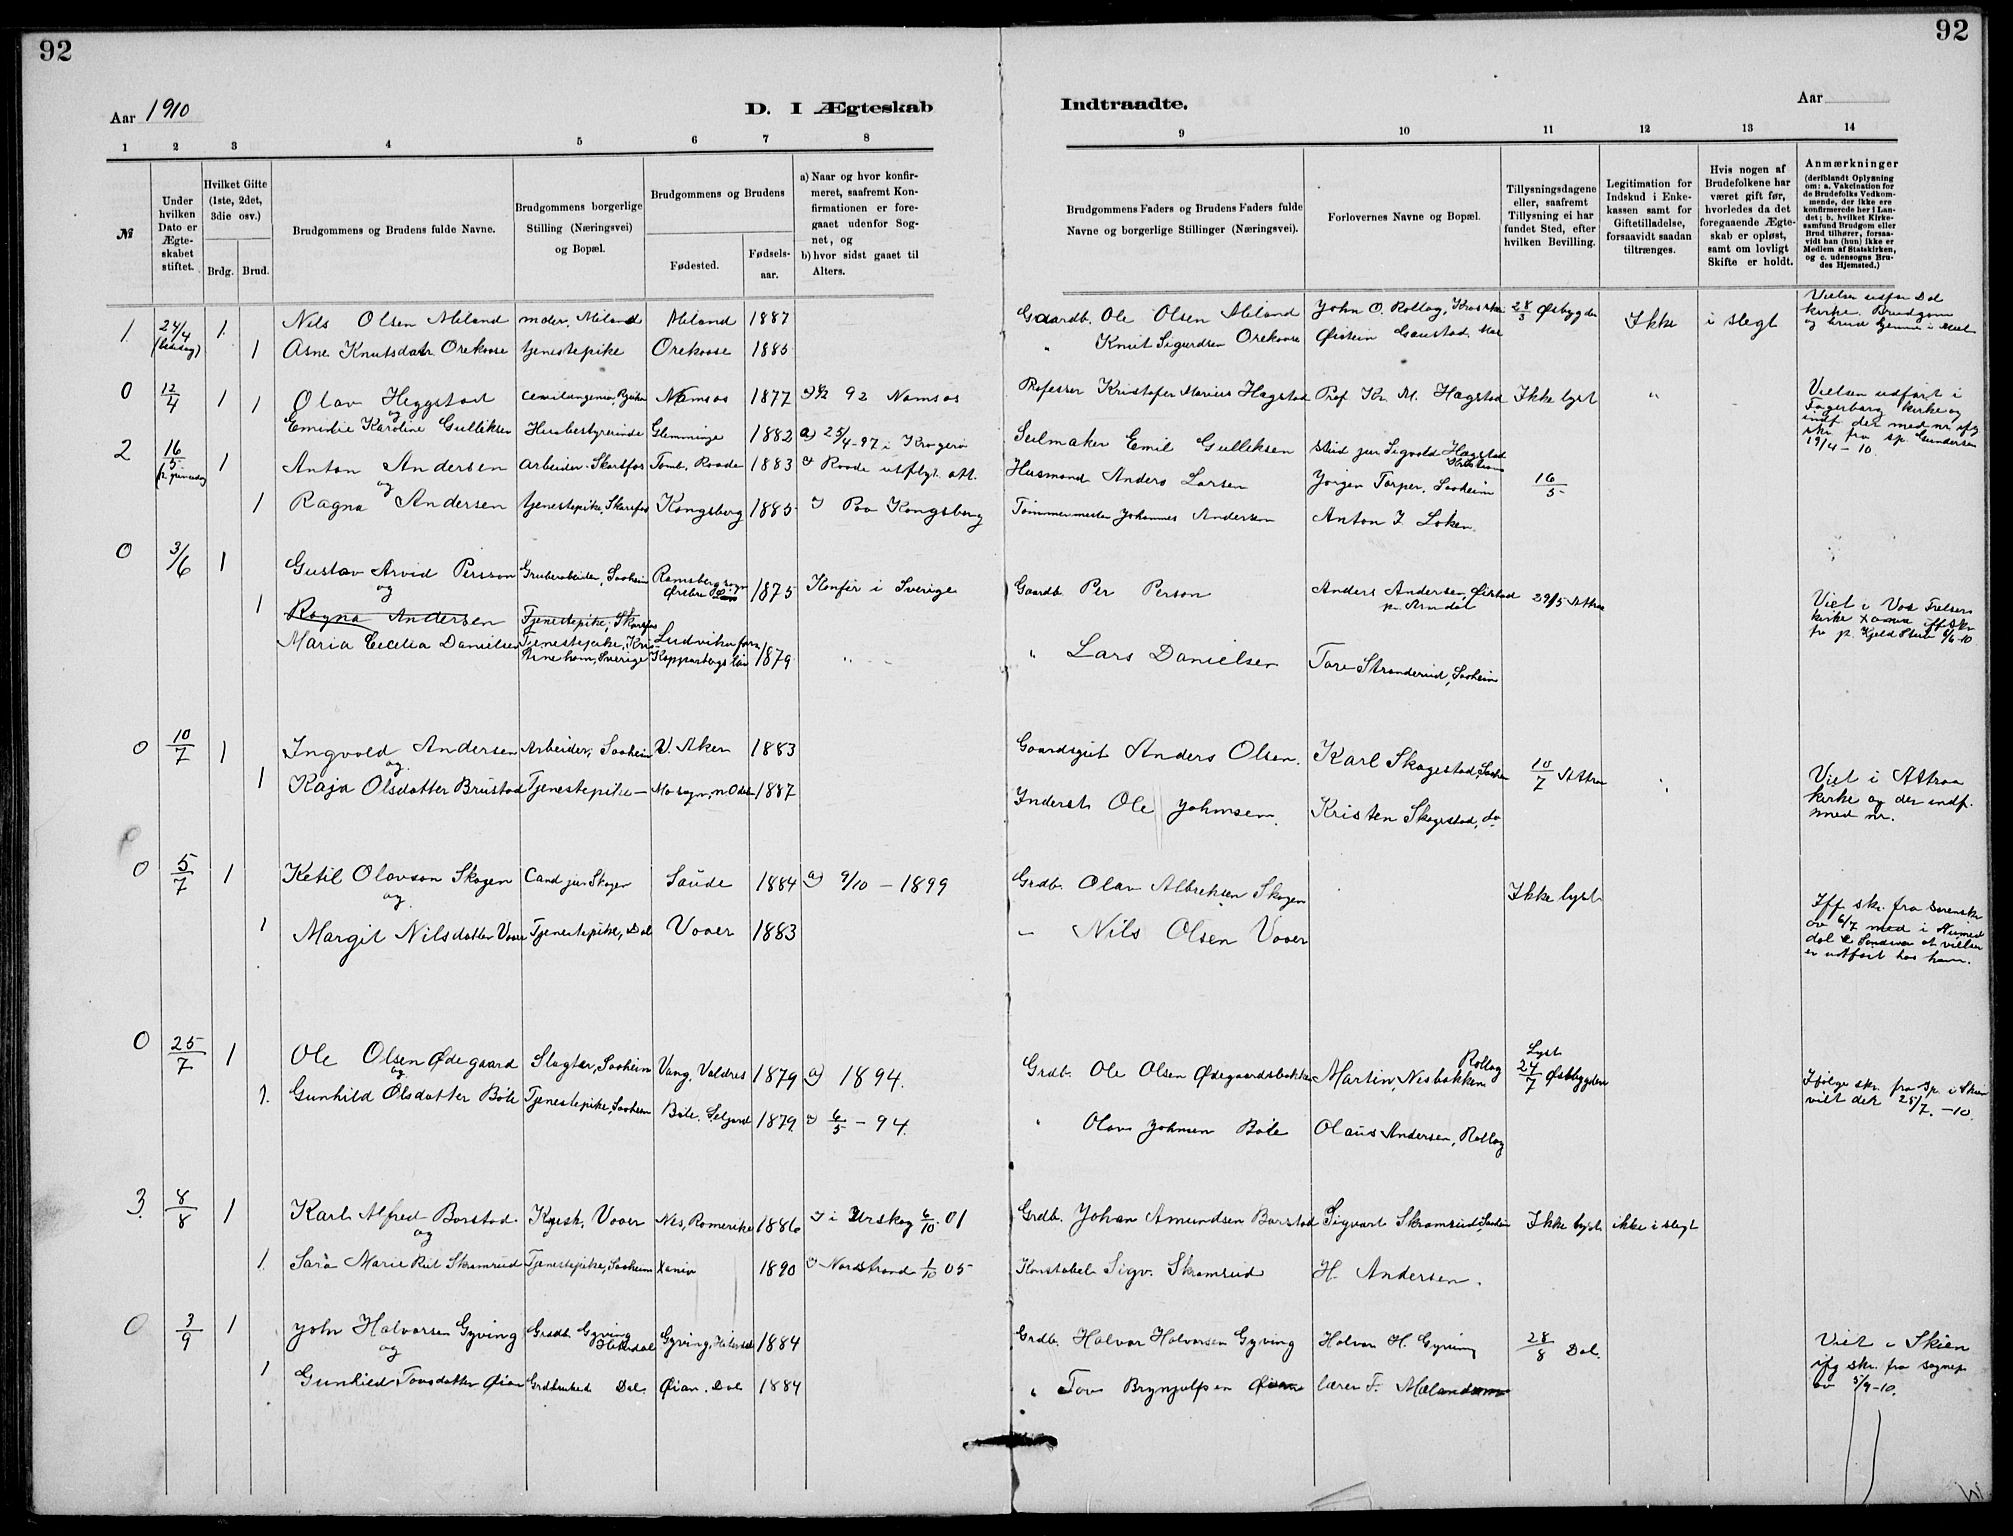 92
92
Aar 1910
D. I Ægteskab
Indtraadte.
Aar
1 2 3 4 5 6 7 8
9 10 11 12 13 14
№
Under hvilken Dato er Ægteskabet stiftet.
Hvilket Gifte (1ste, 2det, 3die osv.)
Brdg. Brud.
Brudgommens og Brudens fulde Navne.
Brudgommens borgerlige Stilling (Næringsvei) og Bopæl.
Brudgommens og Brudens
Fødested.
Fødsels-aar.
a) Naar og hvor konfir-
meret, saafremt Kon-
firmationen er fore-
gaaet udenfor Sog-
net, og
b) hvor sidst gaaet til
Alters.
Brudgommens Faders og Brudens Faders fulde
Navne og borgerlige Stillinger (Næringsvei).
Forlovernes Navne og Bopæl.
Tillysningsdagene
eller, saafremt
Tillysning ei har
fundet Sted, efter
hvilken Bevilling.
Legitimation for
Indskud i Enke-
kassen samt for
Giftetilladelse,
forsaavidt saadan
tiltrænges.
Hvis nogen af
Brudefolkene har
været gift før,
hvorledes da det
foregaaende Ægte-
skab er opløst,
samt om lovligt
Skifte er holdt.
Anmærkninger
(deriblandt Oplysning
om: a. Vakcination for
de Brudefolks Vedkom-
mende, der ikke ere
konfirmerede her i Lan-
det; b. hvilket Kirke-
samfund Brudgom eller
Brud tilhører, forsaa-
vidt han (hun) ikke er
Medlem af Statskirken,
og c. udensogns Bru-
des Hjemsted.)
1 24/4 1 Nils Olsen Miland Miland Miland 1887 Gaardb. Ole Olsen Miland John O. Rollag 28/3 Østbygden Ikke i slegt
1 Asne Knutsdatr Orekaase tjenestepike Orekaase 1885 " Knut Sigurdsen Orekaase Øistein Gaustad, Mæl
0 12/4 1 1 Olav Heggstad og Namsos 1877 92 Namsos Professer Kristofer Marius Hægstad Prof Kr. M. Hægstad Ikke lyst "
Vielsen udført i
Fagerborg kirke og
indf. der med nr
skr. fra sp. Gundersen
19/4 - 10.
Emilie Karoline Gulliksen Husbestyrerinde Glemminge 1882 a) 25/4-97 i Kragerø Seilmaker Emil Gulliksen stud jur Sigvald Hægstad
2 16/5 1 Anton Andersen og arbeider Skarfos Tomb, Raade 1883 Raade utflyt. att. Husmand Anders Larsen Jørgen Torper, Saaheim 16/5
1 Ragna Andersen tjenestepike, Skarsfos Kongsberg 1885 Paa Kongsberg Tømmermester Johannes Andersen Anton J. Løken
0 3/6 1 Gustav Arvid Persson og Grubearbeider, Saaheim Ramsberg sogn Ørebro 1875 Konfir i Sverige Gaardb. Per Person Anders Andersen, Øistad p. Arndal 29/5 Attraa
Viet i Vor Frelsers
kirke Xania iflf skr
fra p. Kjeld Stub 6/6-10
1 Ragna Andersen Tjenestepike, Skarsfos
Maria Cecilia Danielsen Tjenestepike, Kristinehom, Sverige Ludvika fors Kopparbergs län 1879 " " " Lars Danielsen Tore Stranderud, Saaheim
0 10/7 1 Ingvald Andersen og Arbeider, Saaheim V. Aker 1883 Gaardsgut Anders Olsen. Karl Skagestad, Saaheim 10/7 Attraa
Viet i Attraa
kirke og der indf.
med nr.
1 Kaja Olsdatter Brustad Tjenestepike — Mo sogn, n Odal 1887 Inderst Ole Johnsen Kristen Skagestad, do
0 5/7 1 Ketil Olavson Skogen og Cand jur Skogen Saude 1884 a) 9/10 - 1899 Grdb. Olav Albrektsen Skogen Ikke lyst
Iflf skr. fra Sorenskr
av 6/7 med i Numedal
dal & Sandsvær at vielsen
er utført hos ham.
1 Margit Nilsdatter Vaaer Tjenestepike, Dal Vaaer 1883 — Nils Olsen Vaaer
0 25/7 1 Ole Olsen Ødegaard og Slagter, Saaheim Vang, Valdres 1879 a) 1894. Grdb. Ole Olsen Ødegaardsbakken Martin Nesbakken Rollag Lyst 24/7 Østbygden
Ifølge skr. fra Sp. i Skien
viet der 25/7 -10.
1. Gunhild Olsdatter Bøle Tjenestepike, Saaheim Bøle, Seljord 1879 a) 6/5 - 94. " Olav Johnsen Bøle Olaus Andersen, Rollag
3. 8/8 1 Karl Alfred Borstad og Kusk, Vaaer Nes, Romerike 1886 i Urskog 6/10.01 Grdb. Johan Amundsen Borstad Sigvart Skramrud, Saaheim Ikke lyst ikke i slegt
1. Sara Marie Rut Skramrud Tjenestepike, Saaheim Xania 1890 Nordstrand 1/10 05 Konstabel Sigv. Skramrud H. Andersen.
0 3/9 1 John Halvorsen Gyving og Grdb Gyving Hitterdal Gyving, Hiterdal 1884 Grdb. Halvor Halvorsen Gyving Halvor H. Gyving 28/8 Dal.
Viet i Skien
iflg skr. fra sognep.
av 5/9-10.
1 Gunhild Tovsdatter Øian Grdbruked Dal Øian. Dal 1884 " Tov Brynjulfsen Øian lærer T. Mælandsmo